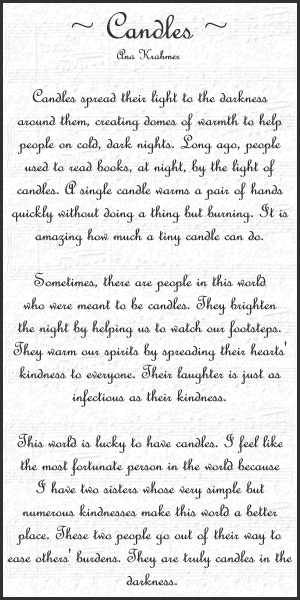 ~ Candles ~
Ana Krahmer
Candles spread their light to the darkness
around them, creating domes of warmth to help
people on cold, dark nights. Long ago, people
used to read books, at night, by the light of
candles. A single candle warms a pair of hands
quickly without doing a thing but burning. It is
amazing how much a tiny candle can do.
Sometimes, there are people in this world
who were meant to be candles. They brighten
the night by helping us to watch our footsteps.
They warm our spirits by spreading their hearts'
kindness to everyone. Their laughter is just as
infectious as their kindness.
This world is lucky to have candles. I feel like
the most fortunate person in the world because
I have two sisters whose very simple but
numerous kindnesses make this world a better
place. These two people go out of their way to
ease others' burdens. They are truly candles in the
darkness.